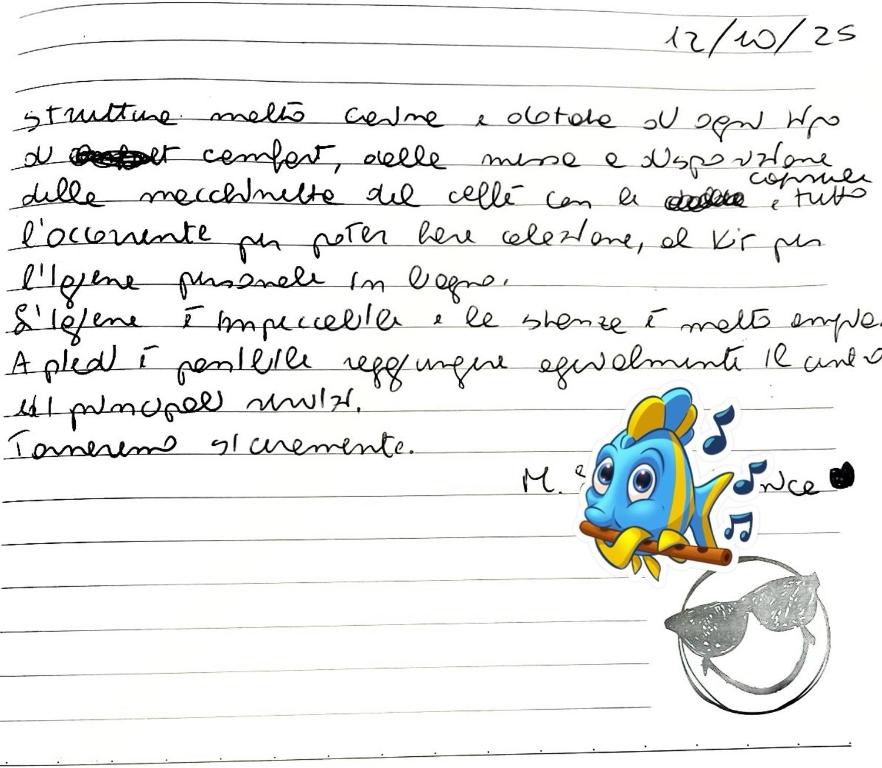 12/10/25
struttura molto carina e dotata di ogni tipo
di comfort, dalla messa a disposizione
della macchinetta del caffè con le capsule e tutto
l'occorrente per poter fare colazione, al kit per
l'igiene personale in bagno.
L'igiene è impeccabile e la stanza è molto ampia.
A piedi è possibile raggiungere agevolmente il centro
ed i principali servizi.
Torneremo sicuramente.
M. e